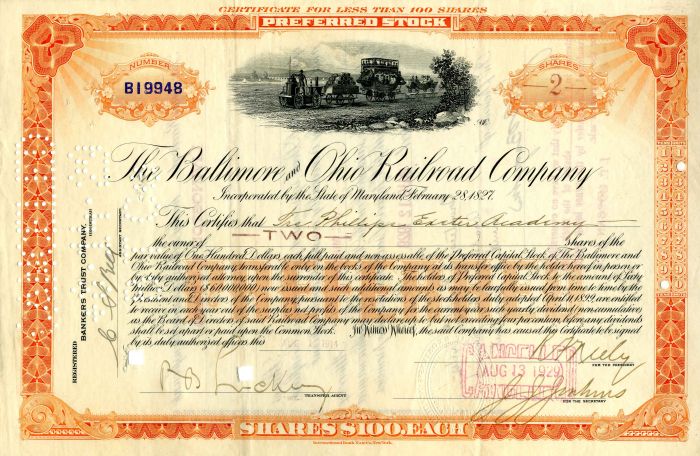 CERTIFICATE FOR LESS THAN 100 SHARES
PREFERRED STOCK
NUMBER
B19948
SHARES
2
The Baltimore and Ohio Railroad Company
Incorporated by the State of Maryland, February 28, 1827.
This Certifies that Trs Phillips Exeter Academy
the owner of TWO Shares of the
par value of One Hundred Dollars each, full paid and non assessable, of the Preferred Capital Stock of The Baltimore and
Ohio Railroad Company, transferable only on the books of the Company at its transfer office by the holder hereof in person or
by duly authorized attorney upon the surrender of this certificate. The Holders of Preferred Capital Stock to the amount of Sixty
Million Dollars ($60,000,000) now issued and such additional amounts as may be lawfully issued from time to time by the
President and Directors of the Company, pursuant to the resolutions of the stockholders duly adopted April 11, 1899, are entitled
to receive in each year out of the surplus net profits of the Company for the current year, such yearly dividend (non-cumulative)
as the Board of Directors of said Railroad Company may declare up to, but not exceeding, four per centum, before any dividend
shall be set apart or paid upon the Common Stock. In Witness Whereof, the said Company has caused this Certificate to be signed
by its duly authorized officers this
1914
CANCELLED
AUG 13 1929
FOR THE PRESIDENT
TRANSFER AGENT
FOR THE SECRETARY
SHARES $100. EACH
International Bank Note Co. New York.
REGISTERED
COUNTERSIGNED
BANKERS TRUST COMPANY,